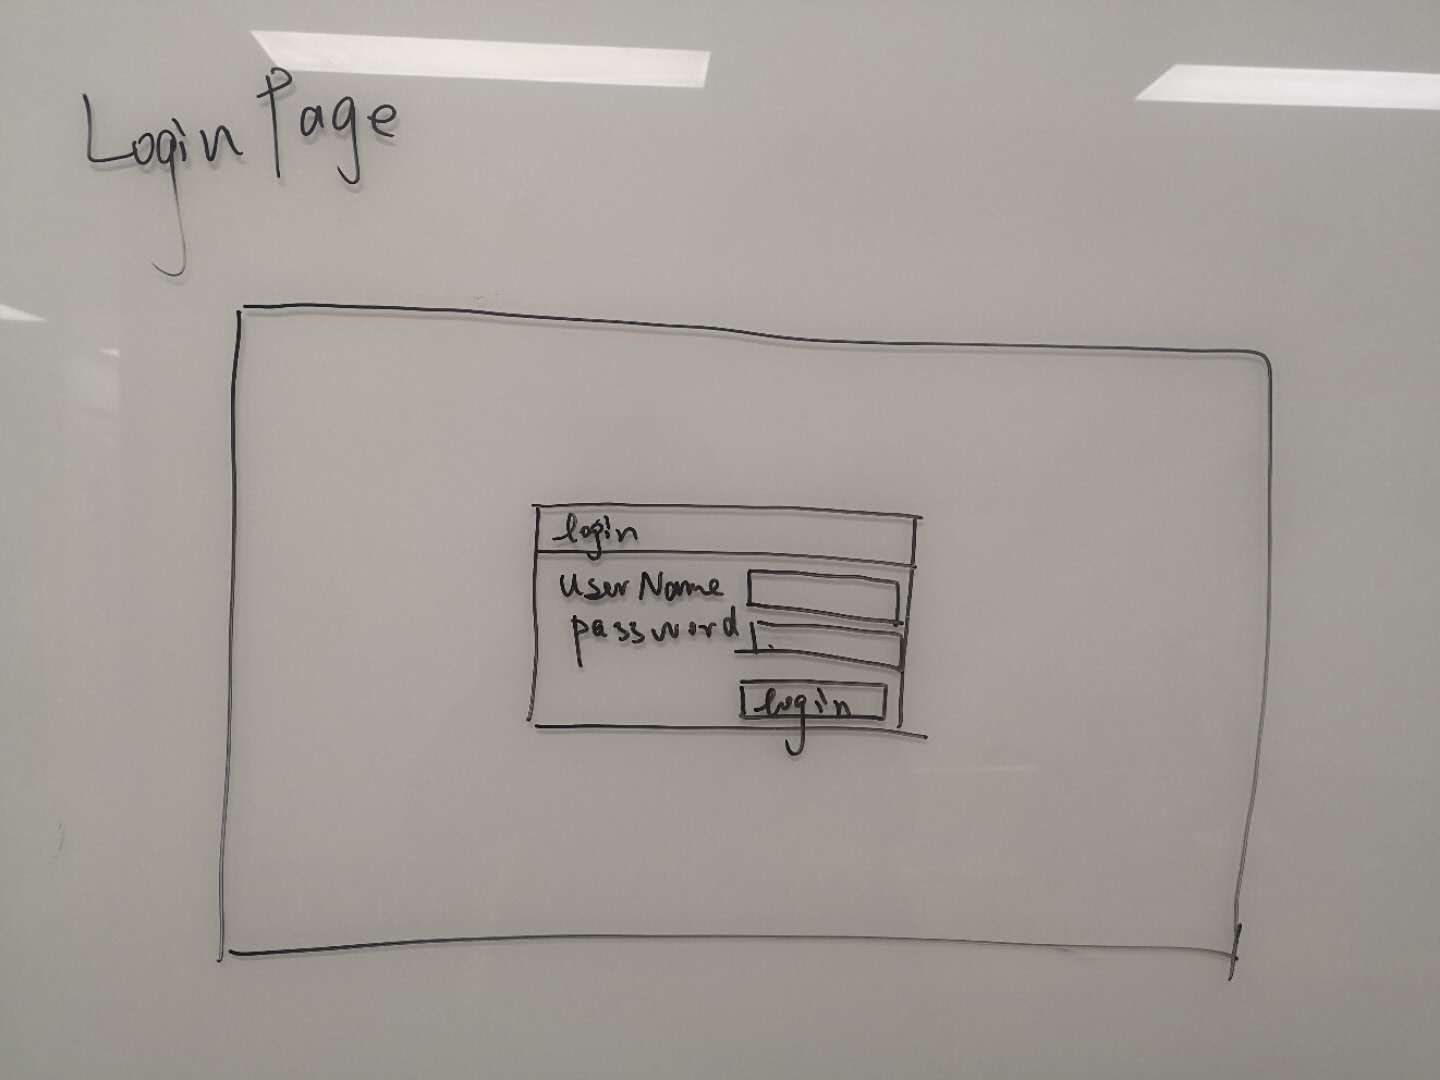 Login Page
login
UserName
password
login